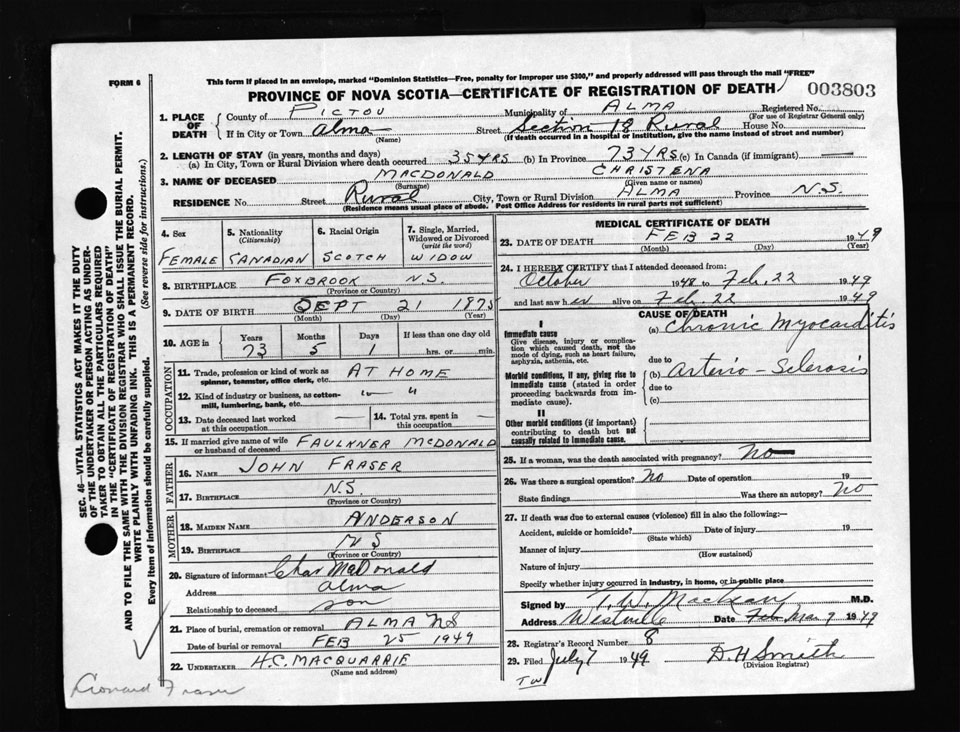 FORM 6
This form if placed in an envelope, marked "Dominion Statistics—Free, penalty for improper use $300," and properly addressed will pass through the mail "FREE"
PROVINCE OF NOVA SCOTIA—CERTIFICATE OF REGISTRATION OF DEATH
003803
1. PLACE OF DEATH
County of PICTOU Municipality of ALMA Registered No.
(For use of Registrar General only)
If in City or Town Alma Street Section 18 Rural House No.
(Name) (If death occurred in a hospital or institution, give the name instead of street and number)
2. LENGTH OF STAY (in years, months and days)
(a) In City, Town or Rural Division where death occurred 35 YRS (b) In Province 73 YRS (c) In Canada (if immigrant) —
3. NAME OF DECEASED MACDONALD CHRISTENA
(Surname) (Given name or names)
RESIDENCE No. Street Rural City, Town or Rural Division ALMA Province N.S.
(Residence means usual place of abode. Post Office Address for residents in rural parts not sufficient)
4. Sex
FEMALE
5. Nationality (Citizenship)
CANADIAN
6. Racial Origin
SCOTCH
7. Single, Married, Widowed or Divorced (write the word)
WIDOW
8. BIRTHPLACE FOXBROOK N.S.
(Province or Country)
9. DATE OF BIRTH SEPT 21 1875
(Month) (Day) (Year)
10. AGE in Years Months Days If less than one day old
73 5 1 hrs. or min.
OCCUPATION
11. Trade, profession or kind of work as spinner, teamster, office clerk, etc. AT HOME
12. Kind of industry or business, as cotton-mill, lumbering, bank, etc. " "
13. Date deceased last worked at this occupation —
14. Total yrs. spent in this occupation —
15. If married give name of wife or husband of deceased FAULKNER MCDONALD
FATHER
16. NAME JOHN FRASER
17. BIRTHPLACE N.S.
(Province or Country)
MOTHER
18. MAIDEN NAME ANDERSON
19. BIRTHPLACE N S
(Province or Country)
20. Signature of informant Chas McDonald
Address Alma
Relationship to deceased son
21. Place of burial, cremation or removal ALMA NS
Date of burial or removal FEB 25 1949
22. UNDERTAKER H.C. MACQUARRIE
(Name and address)
MEDICAL CERTIFICATE OF DEATH
23. DATE OF DEATH FEB 22 1949
(Month) (Day) (Year)
24. I HEREBY CERTIFY that I attended deceased from:
October 1948 to Feb. 22 1949
and last saw her alive on Feb. 22 1949
CAUSE OF DEATH
I
Immediate cause
Give disease, injury or complication which caused death, not the mode of dying, such as heart failure, asphyxia, asthenia, etc.
(a) Chronic Myocarditis
due to
Morbid conditions, if any, giving rise to immediate cause (stated in order proceeding backwards from immediate cause).
(b) Arterio-Sclerosis
due to
(c)
II
Other morbid conditions (if important) contributing to death but not causally related to immediate cause.
25. If a woman, was the death associated with pregnancy? No
26. Was there a surgical operation? No Date of operation 19
State findings Was there an autopsy? No
27. If death was due to external causes (violence) fill in also the following:—
Accident, suicide or homicide? Date of injury 19
(State which)
Manner of injury
(How sustained)
Nature of injury
Specify whether injury occurred in industry, in home, or in public place
Signed by T. W. MacLean M.D.
Address Westville Date Feb Mar 9 1949
28. Registrar's Record Number 8
29. Filed July 7 1949 D.H Smith
(Division Registrar)
TW
SEC. 46—VITAL STATISTICS ACT MAKES IT THE DUTY
OF THE UNDERTAKER OR PERSON ACTING AS UNDER-
TAKER TO OBTAIN ALL THE PARTICULARS REQUIRED
IN THE "CERTIFICATE OF REGISTRATION OF DEATH"
AND TO FILE THE SAME WITH THE DIVISION REGISTRAR WHO SHALL ISSUE THE BURIAL PERMIT.
WRITE PLAINLY WITH UNFADING INK. THIS IS A PERMANENT RECORD.
Every item of information should be carefully supplied. (See reverse side for instructions.)
Leonard Fraser